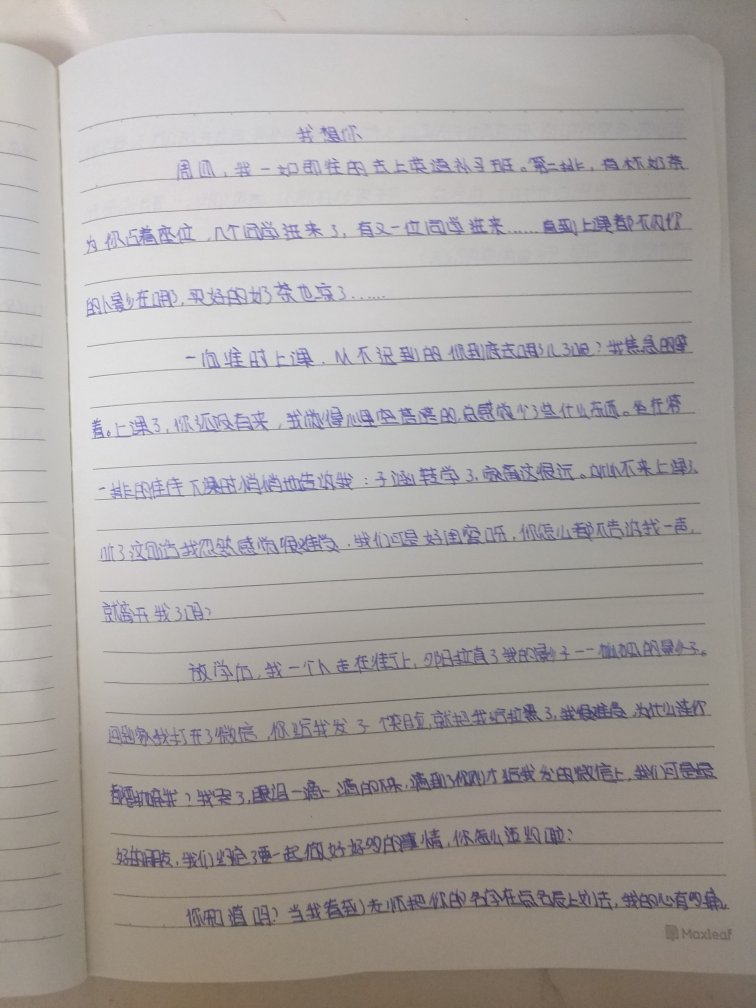 我想你
周四，我一如即往的去上英语补习班。第二排，有杯奶茶
为你占着座位，几个同学进来了，有又一位同学进来……直到上课都不见你
的人影在哪，买好的奶茶也凉了……
一向准时上课，从不迟到的你到底去哪儿了呢？我焦急的等
着。上课了，你还没有来，我觉得心里空落落的，总感觉少了些什么东西。坐在第
一排的佳佳下课时悄悄地告诉我：子涵转学了，离这很远。所以不来上课了。
听了这句话我忽然感觉很难受，我们可是好闺蜜呀，你怎么都不告诉我一声，
就离开我了吗？
放学后，我一个人走在街上，夕阳拉直了我的影子——孤孤的影子。
回到家我打开了微信，你给我发了个笑脸，就把我给拉黑了，我很难受，为什么连你
都要抛弃我？我哭了，眼泪一滴一滴的下来，滴到了你刚才给我发的微信上，我们可是最
好的朋友，我们约定了要一起做好多好多的事情，你怎么违约啦？
你知道吗？当我看到老师把你的名字在点名表上划去，我的心有多痛。
Maxleaf